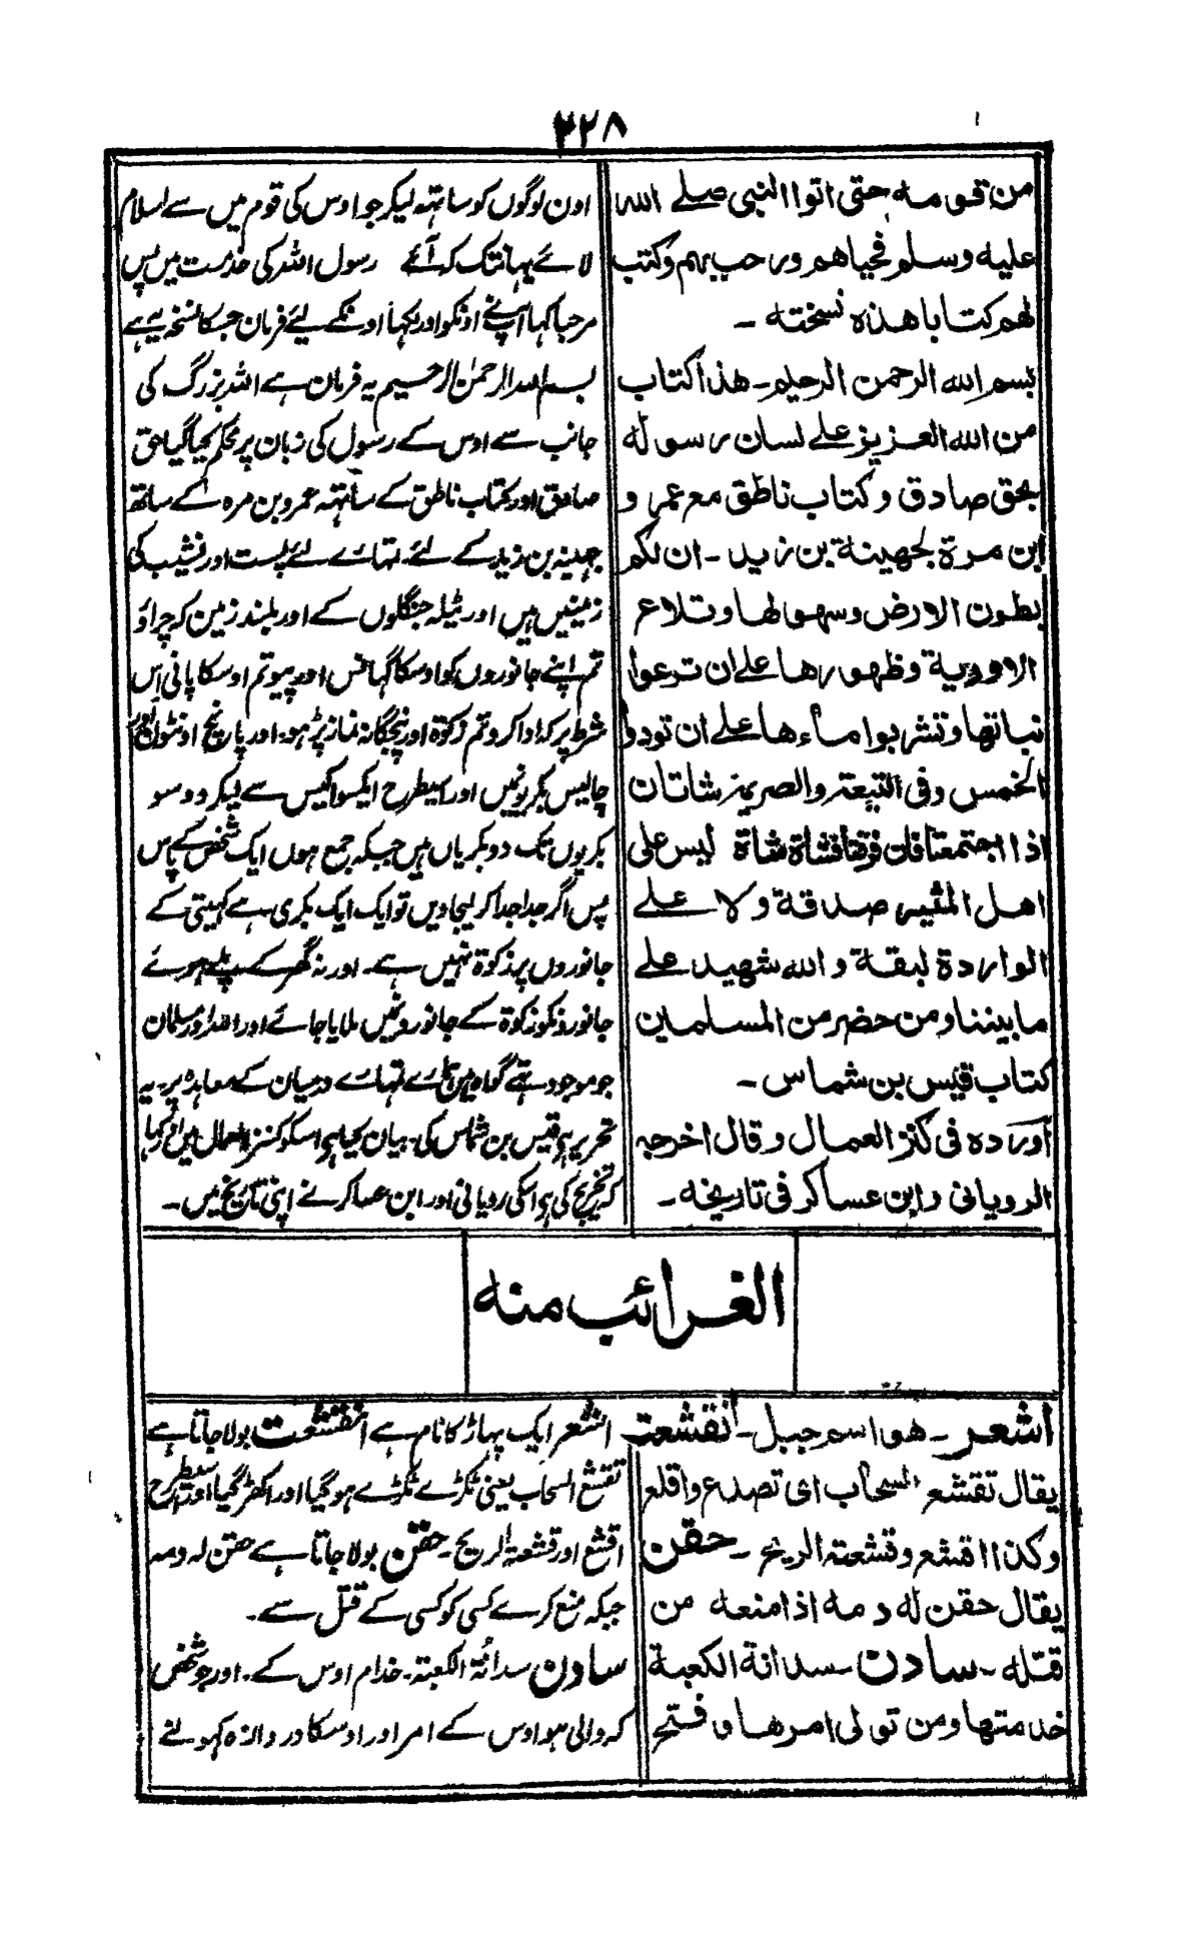 ۳۲۸
من قومه حتى اتوا النبي صلے الله
عليه وسلم فحياهم ورحب بهم وكتب
لهم كتابا هذه نسخته -
بسم الله الرحمن الرحيم - هذا كتاب
من الله العزيز علے لسان رسوله
بحق صادق وكتاب ناطق مع عمر و
ابن مرة لجهينة بن زيد - ان لكم
بطون الارض وسهولها وتلاع
الاودية وظهورها علے ان ترعوا
نباتها وتشربوا ماءها علے ان تودوا
الخمس وفي التيعة والصريمة شاتان
اذا اجتمعتا فان فرقتا فشاة شاة ليس على
اهل المثير صدقة ولا علے
الواردة لبقة والله شهيد علے
ما بيننا ومن حضر من المسلمين
كتاب قيس بن شماس -
اورده فى كنز العمال وقال اخرجه
الرويانى وابن عساكر فى تاريخه -
اون لوگوں کو ساتہہ لیکر جو اوس کی قوم میں سے اسلام
لائے یہانتک کہ آئے رسول اللہ کی خدمت میں پس
مرحبا کہا آپنے اونکو اور لکہا اونکے لیئے فرمان جسکا نسخہ یہ ہے
بسم اللہ الرحمٰن الرحیم یہ فرمان ہے اللہ بزرگ کی
جانب سے اوس کے رسول کی زبان پر محکم کیا گیا حق
صادق اور کتاب ناطق کے ساتہہ عمرو بن مرہ کے ساتھ
جہینہ بن زید کے لئے۔ تمہارے لئے پست اور نشیب کی
زمینیں ہیں اور ٹیلہ جنگلوں کے اور بلند زمین کہ چراؤ
تم اپنے جانوروں کو اوسکا گہانس اور پیو تم اوسکا پانی اس
شرط پر کہ ادا کرو تم زکوٰة اور پنجگانہ نماز پڑہو اور پانچ اونٹوں
چالیس بکریونمیں اور اسیطرح ایکسو اکیس سے لیکر دو سو
بکریوں تک دو بکریاں ہیں جبکہ جمع ہوں ایک شخص کے پاس
پس اگر جدا جدا کر لیجاویں تو ایک ایک بکری ہے کہیتی کے
جانوروں پر زکوٰة نہیں ہے۔ اور نہ گھر کے پلے ہوئے
جانورونکو زکوٰة کے جانورونمیں ملایا جائے اور اللہ اور مسلمان
جو موجود تہے گواہ ہیں ہمارے تمہارے درمیان کے معاہدہ پر۔ یہ
تحریر ہی قیس بن شماس کی۔ بیان کیا ہی اسکو کنز العمال میں اور کہا
کہ تخریج کی ہی اسکی رویانی اور ابن عساکر نے اپنی تاریخ میں۔
الغرائب منه
اشعر - هو اسم جبل - انقشعت
يقال تقشع السحاب اى تصدع واقلع
وكذا اقشع وقشعته الريح - حقن
يقال حقن له دمه اذا منعه من
قتله - سادن - سدانة الكعبة
خدمتها ومن تولى امرها و فتح
اشعر ایک پہاڑ کا نام ہے انقشعت بولا جاتا ہے
تقشع السحاب یعنی ٹکڑے ٹکڑے ہو گیا اور اکھڑ گیا اور اسیطرح
اقشع اور قشعة الریح۔ حقن بولا جاتا ہے حقن لہ دمہ
جبکہ منع کرے کسی کو کسی کے قتل سے۔
سادن سدانة الکعبة۔ خدام اوس کے۔ اور جو شخص
کہ والی ہو اوس کے امر اور اوسکا دروازہ کہولنے